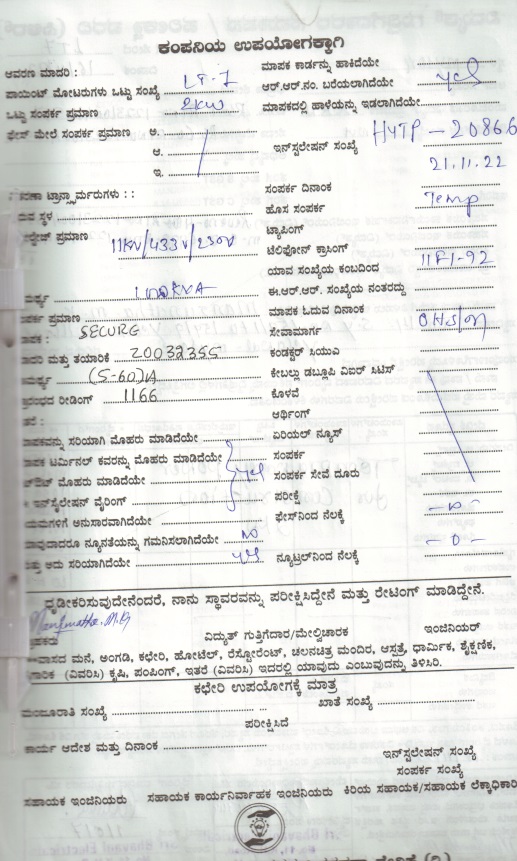 ಕಂಪನಿಯ ಉಪಯೋಗಕ್ಕಾಗಿ
ಆವರಣ ಮಾದರಿ : LT-7 ಮಾಪಕ ಕಾರ್ಡನ್ನು ಹಾಕಿದೆಯೇ
ಪಾಯಿಂಟ್ ಮೋಟರುಗಳು ಒಟ್ಟು ಸಂಖ್ಯೆ ಆರ್.ಆರ್.ನಂ. ಬರೆಯಲಾಗಿದೆಯೇ yes
ಒಟ್ಟು ಸಂಪರ್ಕ ಪ್ರಮಾಣ 2KW ಮಾಪಕದಲ್ಲಿ ಹಾಳೆಯನ್ನು ಇಡಲಾಗಿದೆಯೇ
ಫೇಸ್ ಮೇಲೆ ಸಂಪರ್ಕ ಪ್ರಮಾಣ ಅ.
ಆ. ಇನ್‌ಸ್ಟಲೇಷನ್ ಸಂಖ್ಯೆ HYTP - 20866
ಇ. 21.11.22
ಸಂಪರ್ಕ ದಿನಾಂಕ
ಟ್ರಾನ್ಸ್‌ಫಾರ್ಮರುಗಳು : : ಹೊಸ ಸಂಪರ್ಕ Temp
ಸ್ಥಳ ಟ್ಯಾಪಿಂಗ್
ಪ್ರಮಾಣ 11KV/433V/250V ಟೆಲಿಫೋನ್ ಕ್ರಾಸಿಂಗ್
ಯಾವ ಸಂಖ್ಯೆಯ ಕಂಬದಿಂದ 11F1-92
100KVA ಈ.ಆರ್.ಆರ್. ಸಂಖ್ಯೆಯ ನಂತರದ್ದು
ಪ್ರಮಾಣ ಮಾಪಕ ಓದುವ ದಿನಾಂಕ
SECURE ಸೇವಾಮಾರ್ಗ
ಮತ್ತು ತಯಾರಿಕೆ 20032355 ಕಂಡಕ್ಟರ್ ಸಿಯುವಿ
(5-60)A ಕೇಬಲ್ಲು ಡಬ್ಲೂಪಿ ವಿಐರ್ ಸಿಟಿಸ್
ರೀಡಿಂಗ್ 1166 ಕೊಳವೆ
ಆರ್ಥಿಂಗ್
ಸರಿಯಾಗಿ ಮೊಹರು ಮಾಡಿದೆಯೇ ಏರಿಯಲ್ ನ್ಯೂಸ್
ಟರ್ಮಿನಲ್ ಕವರನ್ನು ಮೊಹರು ಮಾಡಿದೆಯೇ ಸಂಪರ್ಕ
ಮೊಹರು ಮಾಡಿದೆಯೇ yes ಸಂಪರ್ಕ ಸೇವೆ ದೂರು
ಇನ್‌ಸ್ಟಲೇಷನ್ ವೈರಿಂಗ್ ಪರೀಕ್ಷೆ
ಅನುಸಾರವಾಗಿದೆಯೇ ಫೇಸ್‌ನಿಂದ ನೆಲಕ್ಕೆ
ನ್ಯೂನತೆಯನ್ನು ಗಮನಿಸಲಾಗಿದೆಯೇ NO - 0 -
ಅದು ಸರಿಯಾಗಿದೆಯೇ yes ನ್ಯೂಟ್ರಲ್‌ನಿಂದ ನೆಲಕ್ಕೆ
ದೃಢೀಕರಿಸುವುದೇನೆಂದರೆ, ನಾನು ಸ್ಥಾವರವನ್ನು ಪರೀಕ್ಷಿಸಿದ್ದೇನೆ ಮತ್ತು ರೇಟಿಂಗ್ ಮಾಡಿದ್ದೇನೆ.
ವಿದ್ಯುತ್ ಗುತ್ತಿಗೆದಾರ/ಮೇಲ್ವಿಚಾರಕ ಇಂಜಿನಿಯರ್
ಮನೆ, ಅಂಗಡಿ, ಕಛೇರಿ, ಹೋಟೆಲ್, ರೆಸ್ಟೋರೆಂಟ್, ಚಲನಚಿತ್ರ ಮಂದಿರ, ಆಸ್ಪತ್ರೆ, ಧಾರ್ಮಿಕ, ಶೈಕ್ಷಣಿಕ,
(ವಿವರಿಸಿ) ಕೃಷಿ, ಪಂಪಿಂಗ್, ಇತರೆ (ವಿವರಿಸಿ) ಇದರಲ್ಲಿ ಯಾವುದು ಎಂಬುವುದನ್ನು ತಿಳಿಸಿರಿ.
ಕಛೇರಿ ಉಪಯೋಗಕ್ಕೆ ಮಾತ್ರ
ಮಂಜೂರಾತಿ ಸಂಖ್ಯೆ ಖಾತೆ ಸಂಖ್ಯೆ
ಪರೀಕ್ಷಿಸಿದೆ
ಕಾರ್ಯ ಆದೇಶ ಮತ್ತು ದಿನಾಂಕ
ಇನ್‌ಸ್ಟಲೇಷನ್ ಸಂಖ್ಯೆ
ಸಂಪರ್ಕ ಸಂಖ್ಯೆ
ಸಹಾಯಕ ಇಂಜಿನಿಯರು ಸಹಾಯಕ ಕಾರ್ಯನಿರ್ವಾಹಕ ಇಂಜಿನಿಯರು ಕಿರಿಯ ಸಹಾಯಕ/ಸಹಾಯಕ ಲೆಕ್ಕಾಧಿಕಾರಿ